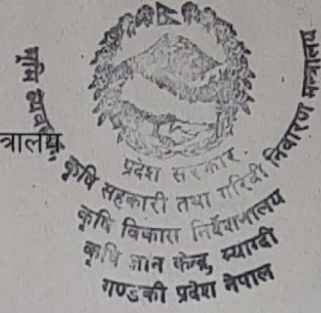 त्रालय
प्रदेश सरकार
भूमि व्यवस्था, कृषि सहकारी तथा गरिबी निवारण मन्त्रालय
कृषि विकास निर्देशनालय
कृषि ज्ञान केन्द्र, म्याग्दी
गण्डकी प्रदेश नेपाल